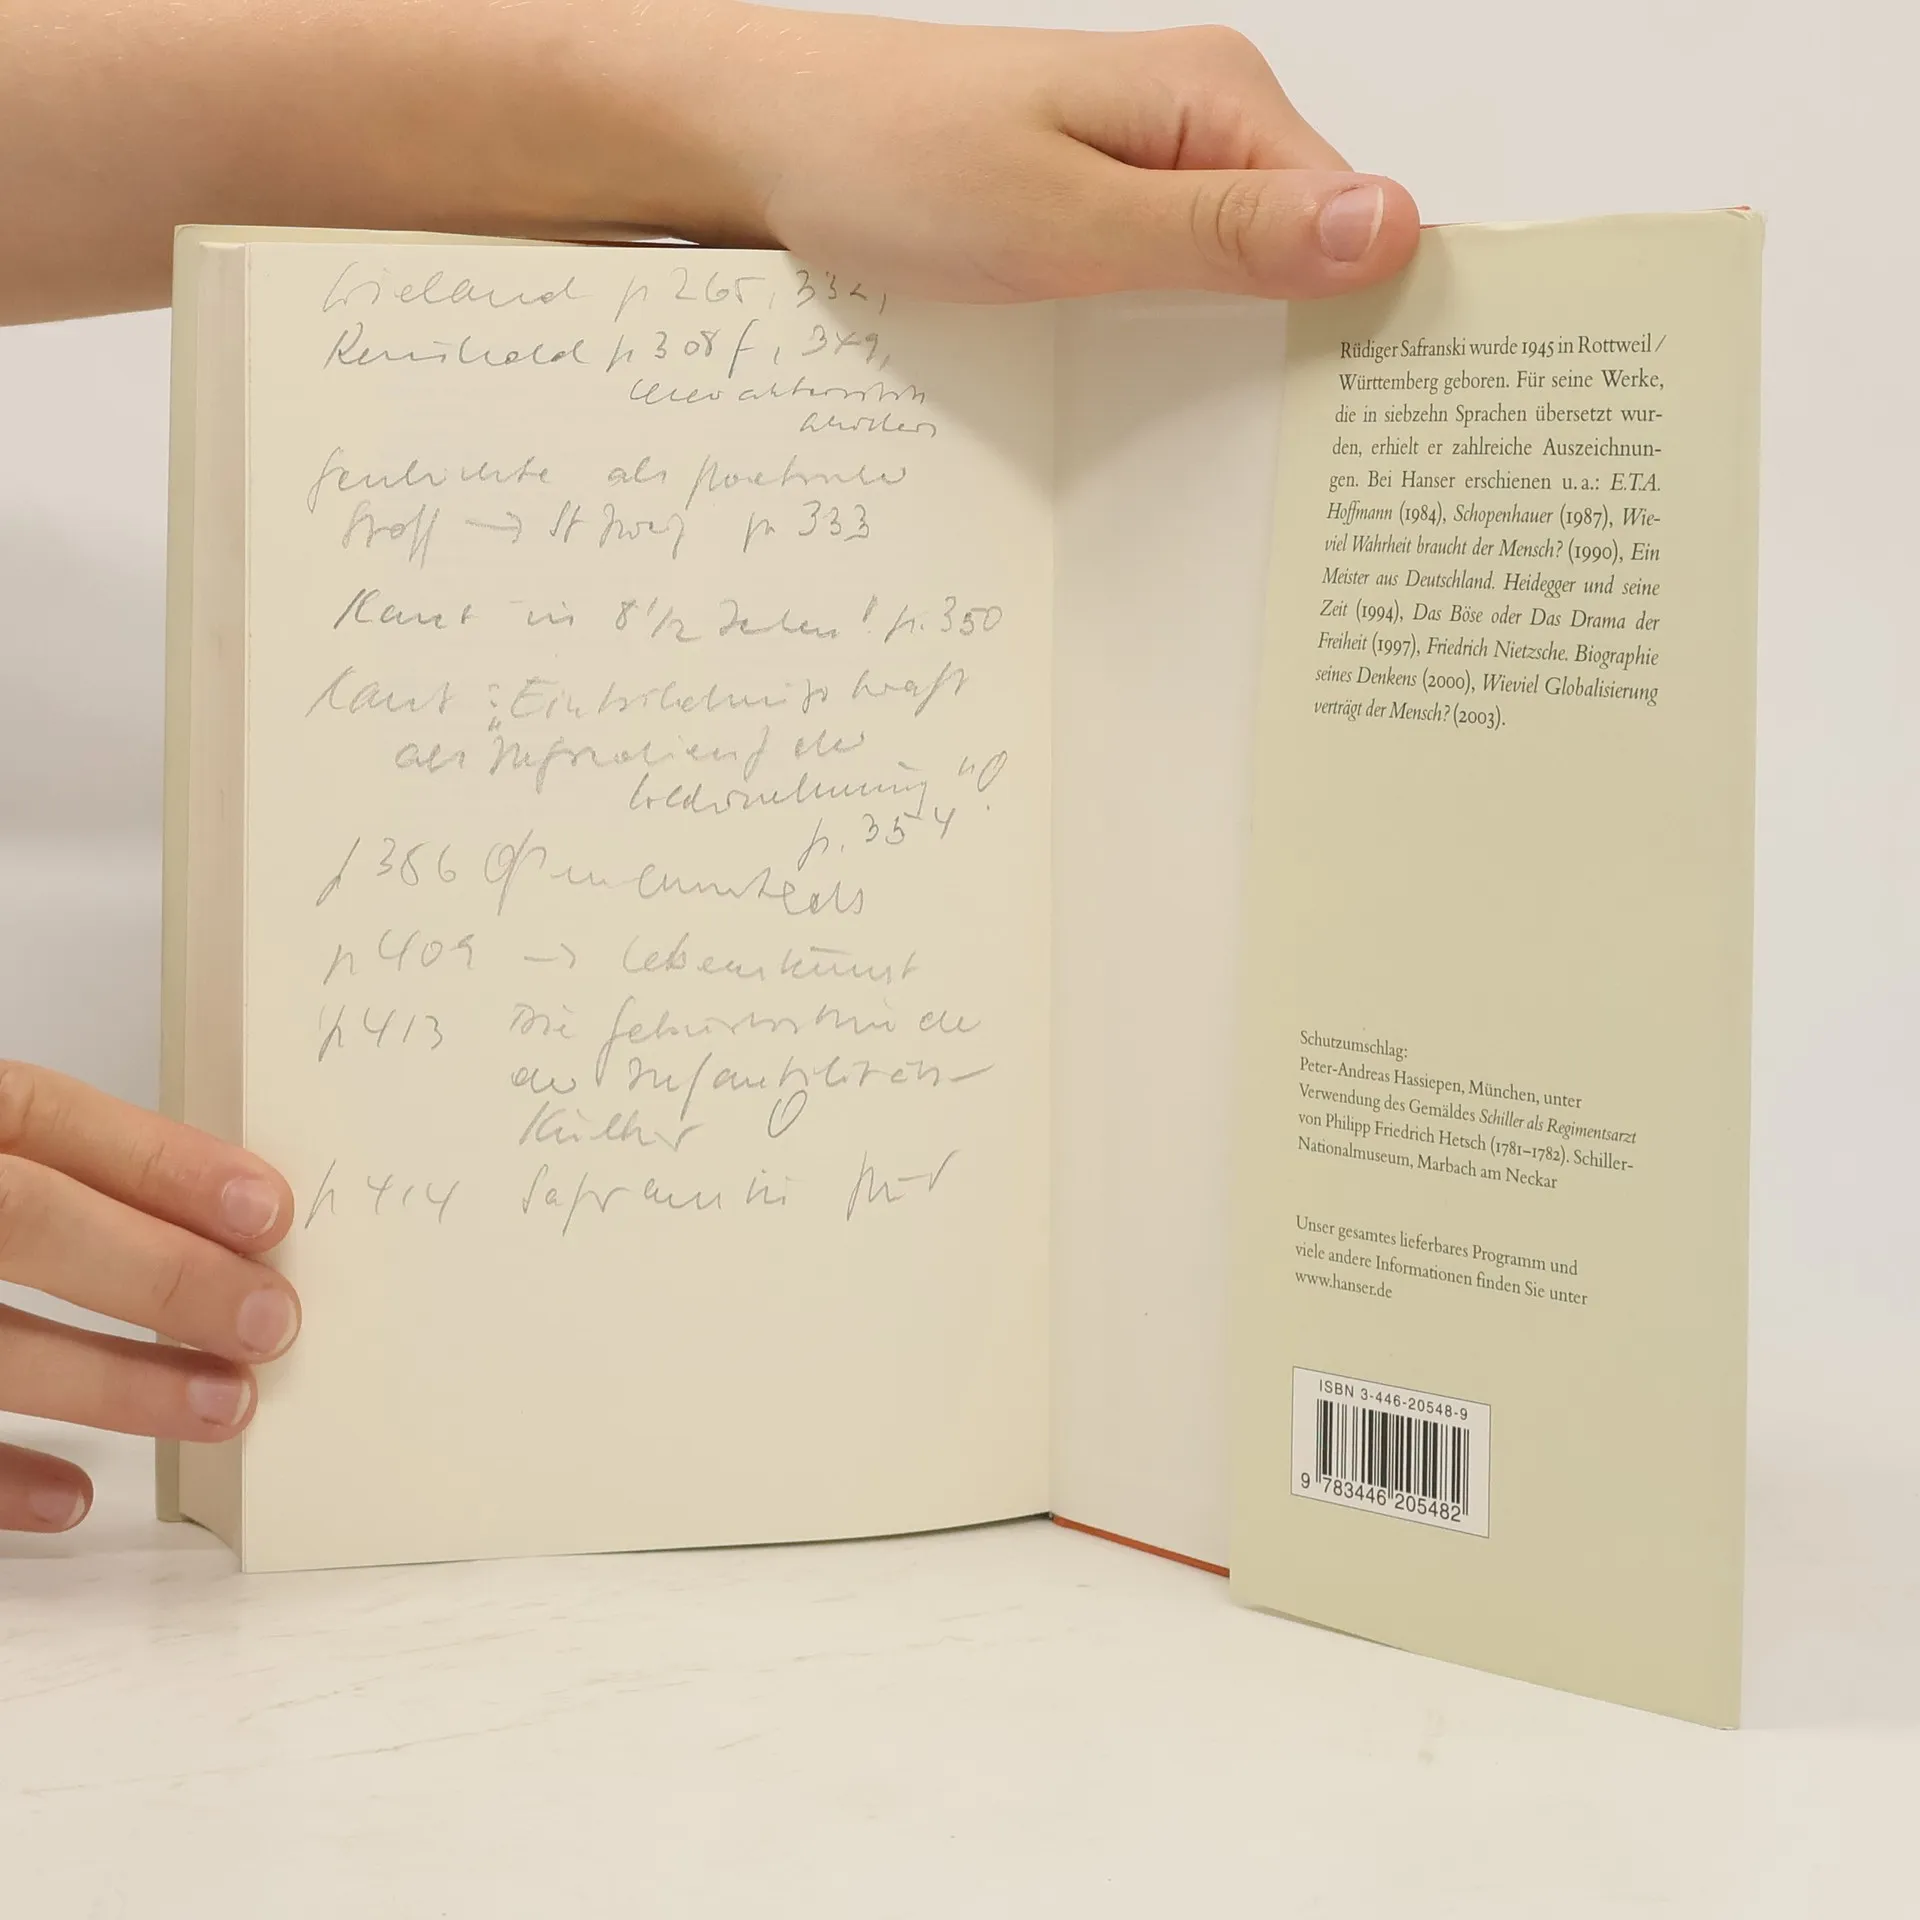 Wieland p 265, 332,
Reinhold p 308 f, 349,
Geschichte als poetischer
Stoff → St Zweig p 333
Kant in 8 1/2 Zeilen! p. 350
Kant: "Einbildungskraft
als Ingredienz der
Wahrnehmung"!
p. 354
p 386
p 409 → Lebenskunst
p 413 Die Geburtsstunde
der Infantilitäts-
Kultur!
p 414 Safranski
Rüdiger Safranski wurde 1945 in Rottweil /
Württemberg geboren. Für seine Werke,
die in siebzehn Sprachen übersetzt wur-
den, erhielt er zahlreiche Auszeichnun-
gen. Bei Hanser erschienen u. a.: E.T.A.
Hoffmann (1984), Schopenhauer (1987), Wie-
viel Wahrheit braucht der Mensch? (1990), Ein
Meister aus Deutschland. Heidegger und seine
Zeit (1994), Das Böse oder Das Drama der
Freiheit (1997), Friedrich Nietzsche. Biographie
seines Denkens (2000), Wieviel Globalisierung
verträgt der Mensch? (2003).
Schutzumschlag:
Peter-Andreas Hassiepen, München, unter
Verwendung des Gemäldes Schiller als Regimentsarzt
von Philipp Friedrich Hetsch (1781–1782). Schiller-
Nationalmuseum, Marbach am Neckar
Unser gesamtes lieferbares Programm und
viele andere Informationen finden Sie unter
www.hanser.de
ISBN 3-446-20548-9
9 783446 205482